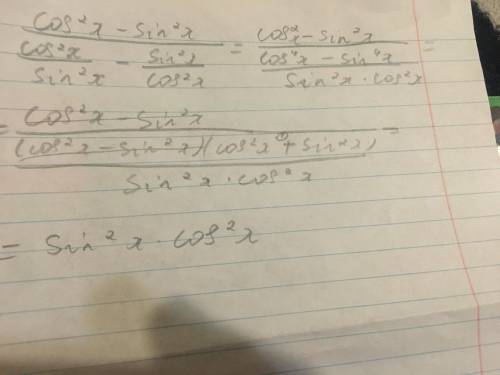 cos²x - sin²x cos²x - sin²x
cos²x - sin²x = cos⁴x - sin⁴x =
sin²x cos²x sin²x · cos²x
= cos²x - sin²x
(cos²x - sin²x)(cos²x + sin²x) =
sin²x · cos²x
= sin²x · cos²x